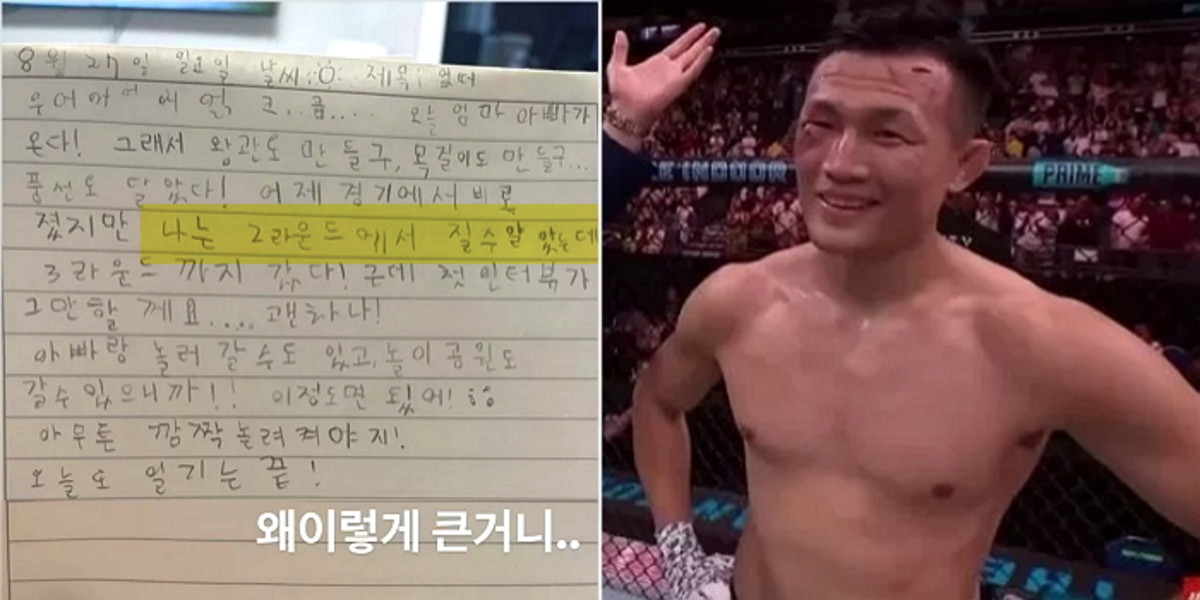 8월 27일 일요일 날씨: 제목: 아빠
우어어어어 에 얼 크..큼.... 오늘 엄마 아빠가
온다! 그래서 왕관도 만들구, 목걸이도 만들구...
풍선도 달았다! 어제 경기에서 비록
졌지만 나는 2라운드에서 질수알 았는데
3라운드 까지 갔다! 근데 첫 인터뷰가
그만할 께요.... 괜차나!
아빠랑 놀러 갈수도 있고, 놀이공원도
갈수 있으니까!! 이정도면 됬어!
아무튼 깜짝놀려켜야지!
오늘도 일기는 끝!
왜이렇게 큰거니..
INDOOR
PRIME